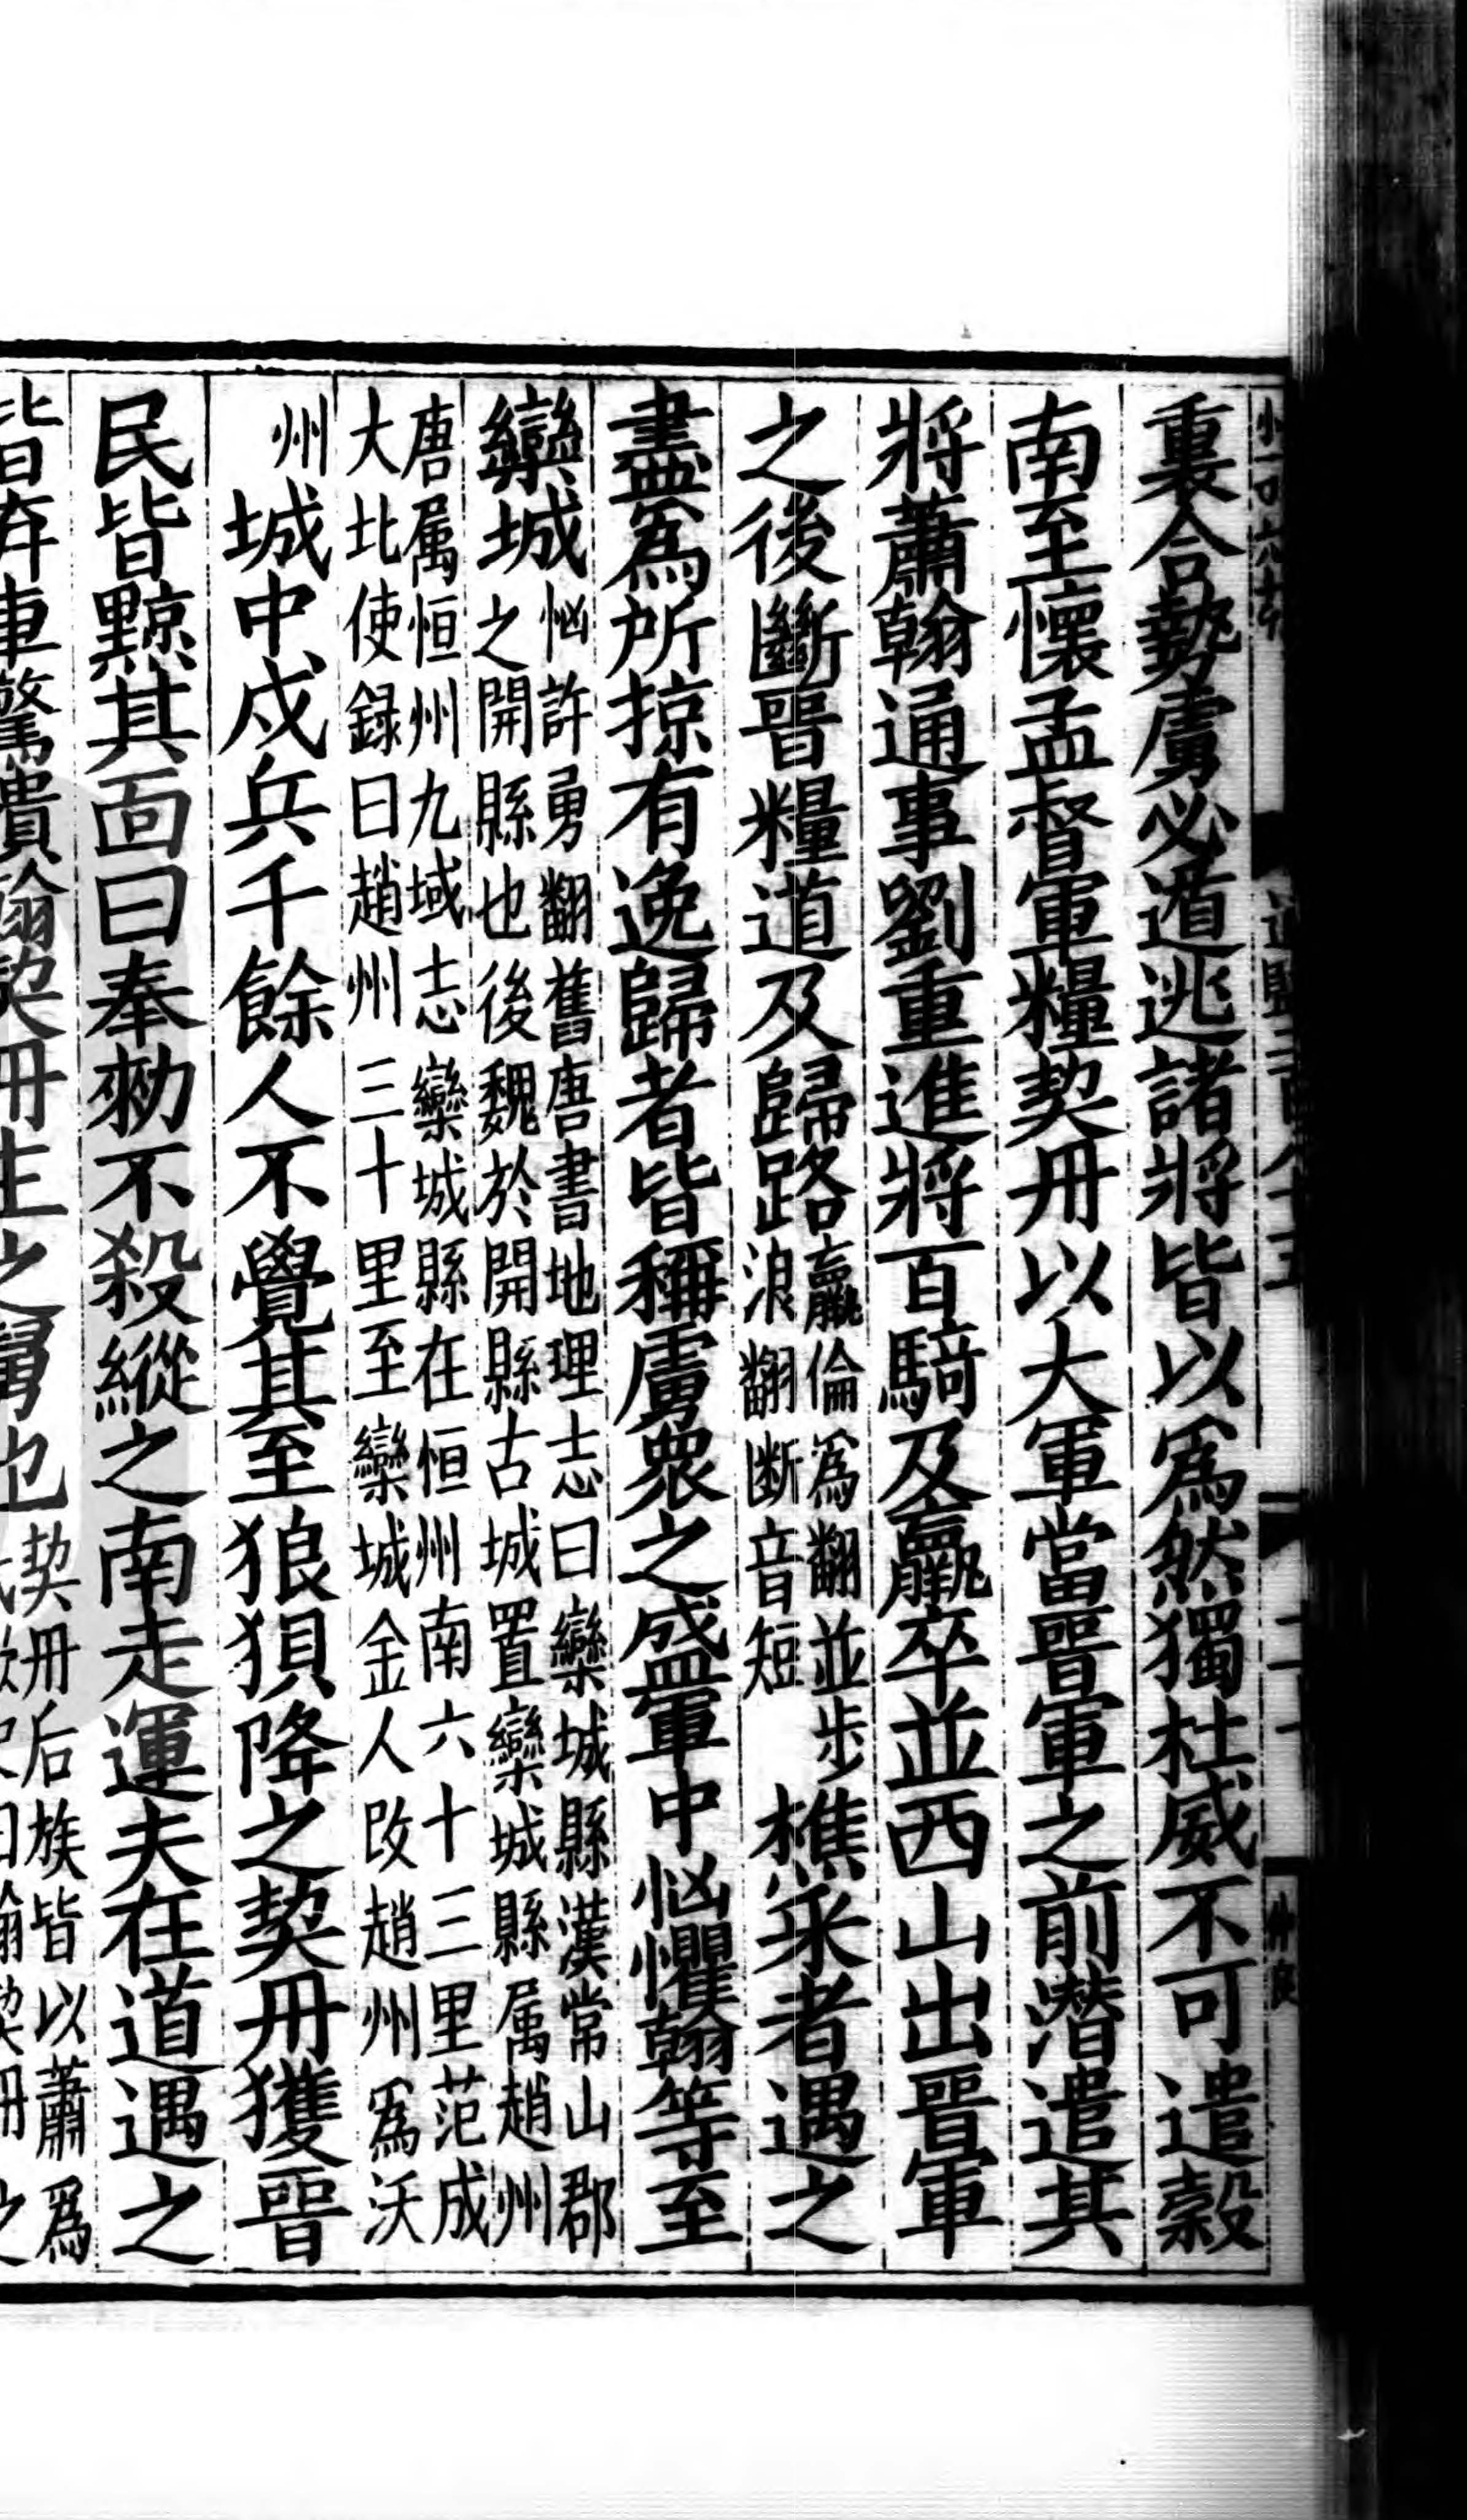 裏合勢虜必遁逃諸將皆以爲然獨杜威不可遣穀
南至懷孟督軍糧契丹以大軍當晉軍之前潛遣其
將蕭翰通事劉重進將百騎及羸卒並西山出晉軍
之後斷晉糧道及歸路羸倫爲翻並步浪翻斷音短樵采者遇之
盡爲所掠有逸歸者皆稱虜衆之盛軍中恟懼翰等至
欒城恟許勇翻舊唐書地理志曰欒城縣漢常山郡之開縣也後魏於開縣古城置欒城縣属趙州
唐属恒州九域志欒城縣在恒州南六十三里范成大北使録曰趙州三十里至欒城金人改趙州爲沃
州城中戍兵千餘人不覺其至狼狽降之契丹獲晉
民皆黥其面曰奉勑不殺縱之南走運夫在道遇之
皆弃車驚潰翰契丹主之舅也契丹后族皆以蕭爲